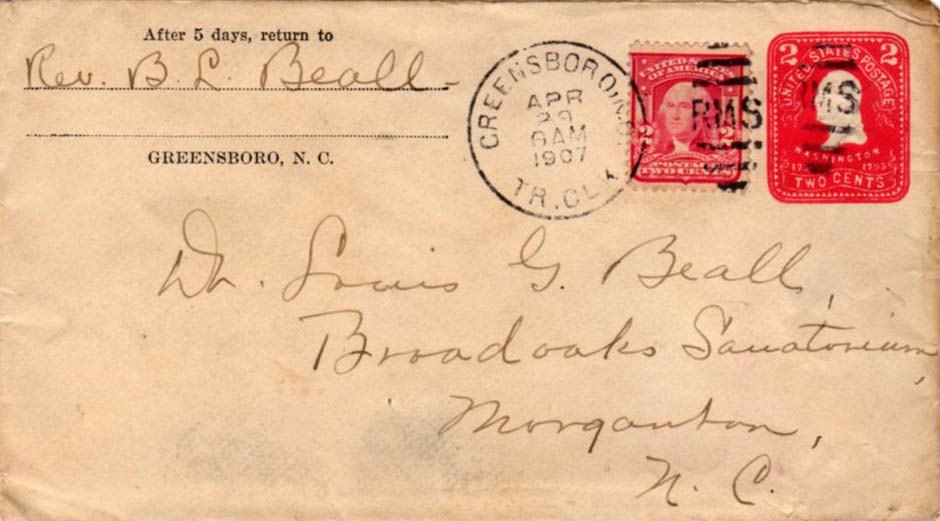 After 5 days, return to
Rev. B. L. Beall
GREENSBORO, N. C.
GREENSBORO, N.C.
APR
29
6AM
1907
TR. CLK
UNITED STATES
OF AMERICA
2 2
POSTAGE
TWO CENTS
RMS
2 2
UNITED STATES POSTAGE
WASHINGTON
TWO CENTS
RMS
Dr. Louis G. Beall,
Broadoaks Sanatorium,
Morganton,
N. C.